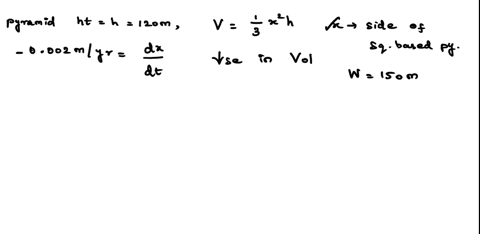 pyramid ht = h = 120m, V = 1/3 x²h x → side of sq. based py.
- 0.002 m/yr = dx/dt ↓se in Vol
W = 150m